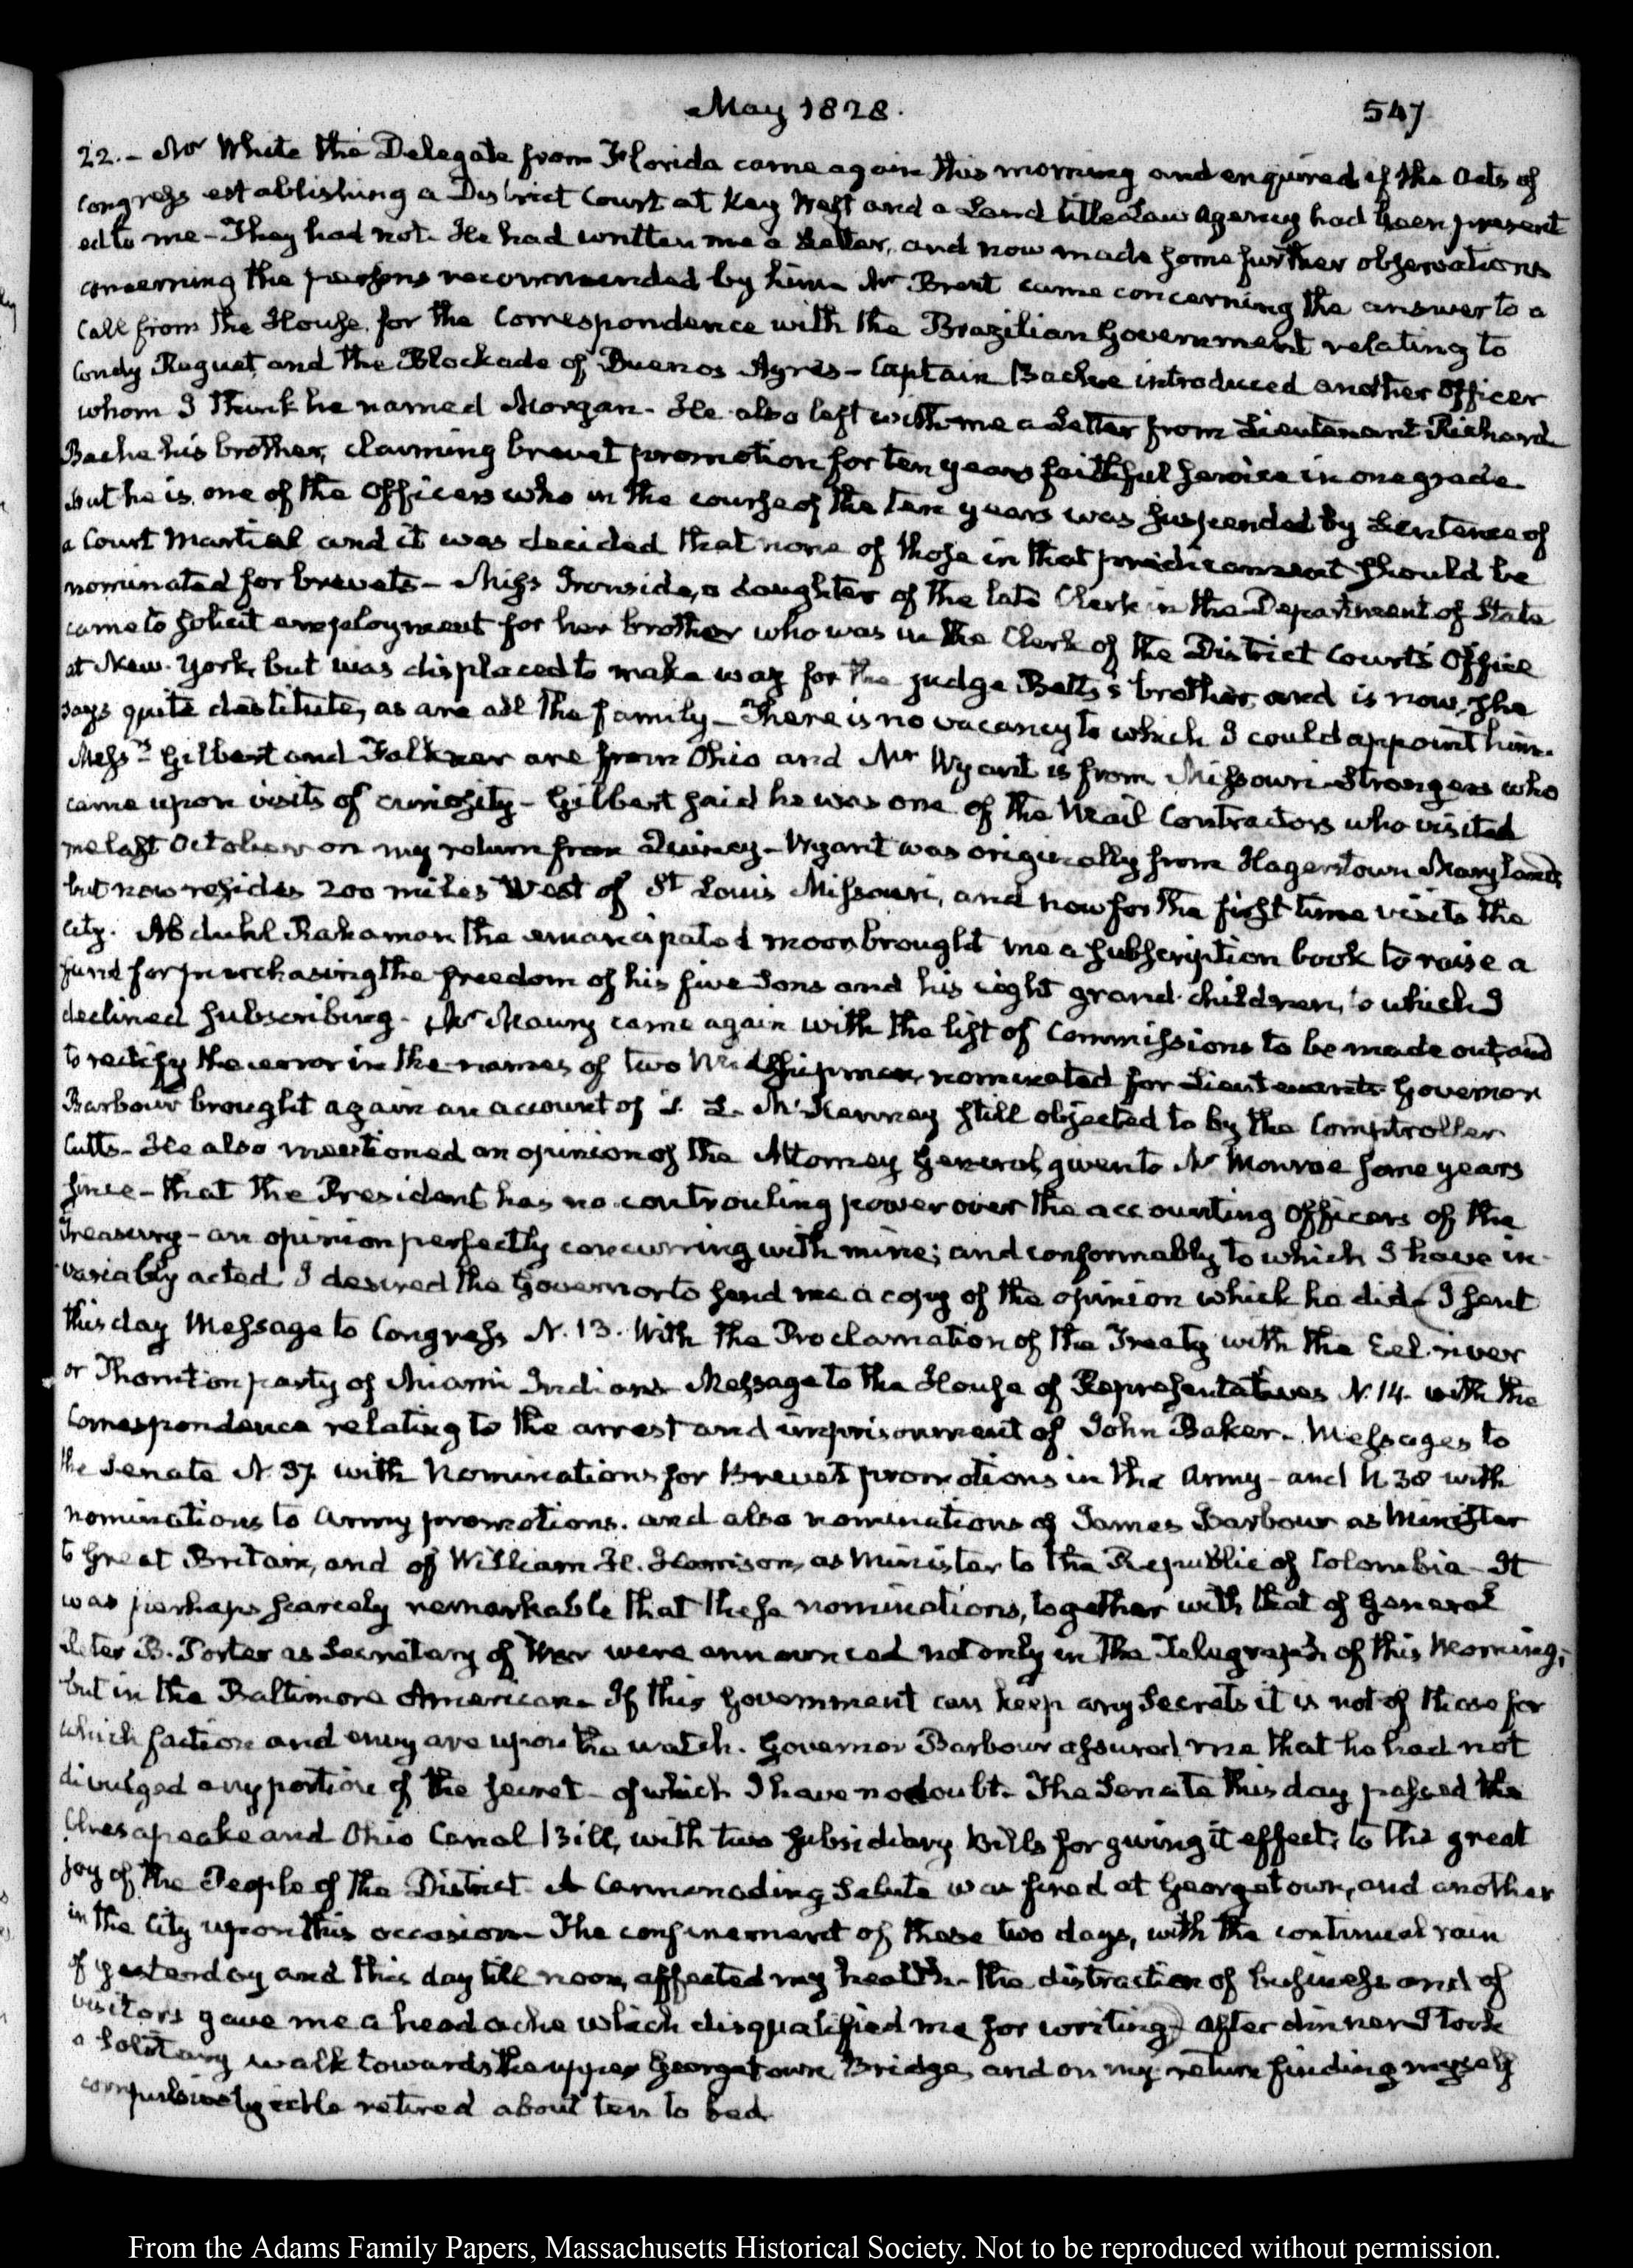 May 1828.
547
22.- Mr. White the Delegate from Florida came again this morning and enquired if the Acts of
Congress establishing a District Court at Key West and a Land title Law Agency had been present
ed to me- They had not. He had written me a Letter, and now made some further observations
concerning the persons recommended by him. Mr Brent came concerning the answer to a
Call from the House, for the Correspondence with the Brazilian Government relating to
Condy Raguet, and the Blockade of Buenos Ayres- Captain Bache introduced another Officer
whom I think he named Morgan- He also left with me a Letter from Lieutenant Richard
Bache his brother, claiming brevet promotion for ten years faithful service in one grade
but he is one of the Officers who in the course of the ten years was suspended by Sentence of
a Court Martial and it was decided that none of those in that predicament should be
nominated for brevets- Miss Ironside, a daughter of the late Clerk in the Department of State
came to solicit employment for her brother who was in the Clerk of the District Court's Office
at New-York, but was displaced to make way for the judge Betts's brother, and is now, she
says quite destitute, as are all the family- There is no vacancy to which I could appoint him.
Messrs Gilbert and Falkner are from Ohio and Mr Wyant is from Missouri- Strangers who
came upon visits of curiosity- Gilbert said he was one of the Mail Contractors who visited
me last October on my return from Quincy- Wyant was originally from Hagerstown Maryland,
but now resides 200 miles West of St Louis Missouri, and now for the first time visits the
City. Abduhl Rahaman the emancipated moor brought me a subscription book to raise a
fund for purchasing the freedom of his five Sons and his eight grand-children, to which I
declined subscribing- Mr Maury came again with the list of Commissions to be made out, and
to rectify the error in the names of two Midshipmen, nominated for Lieutenants Governor
Barbour brought again an account of T. L. McKenney still objected to by the Comptroller
Cutts- He also mentioned an opinion of the Attorney General, given to Mr Monroe some years
since- that the President has no controuling power over the accounting Officers of the
Treasury- an opinion perfectly concurring with mine; and conformably to which I have in-
variably acted. I desired the Governor to send me a copy of the opinion which he did- I sent
this day Message to Congress N. 13. With the Proclamation of the Treaty with the Eel-river
or Thornton party of Miami Indians- Message to the House of Representatives N. 14. with the
Correspondence relating to the arrest and imprisonment of John Baker- Messages to
the Senate N. 37 with Nominations for Brevet promotions in the Army- and N. 38 with
nominations to Army promotions. and also nominations of James Barbour as Minister
to Great Britain, and of William H. Harrison, as Minister to the Republic of Colombia- It
was perhaps scarcely remarkable that these nominations, together with that of General
Peter B. Porter as Secretary of War were announced not only in the Telegraph of this Morning,
but in the Baltimore American- If this Government can keep any Secrets it is not of those for
which faction and envy are upon the watch. Governor Barbour assured me that he had not
divulged any portion of the secret- of which I have no doubt- The Senate this day passed the
Chesapeake and Ohio Canal Bill, with two subsidiary Bills for giving it effect; to the great
joy of the People of the District- A Cannonading Salute was fired at Georgetown, and another
in the City upon this occasion- The confinement of these two days, with the continual rain
of yesterday and this day till noon, affected my health- the distraction of business and of
visitors gave me a head ache which disqualified me for writing) After dinner I took
a solitary walk towards the upper Georgetown Bridge, and on my return finding myself
compulsively idle retired about ten to bed.
From the Adams Family Papers, Massachusetts Historical Society. Not to be reproduced without permission.